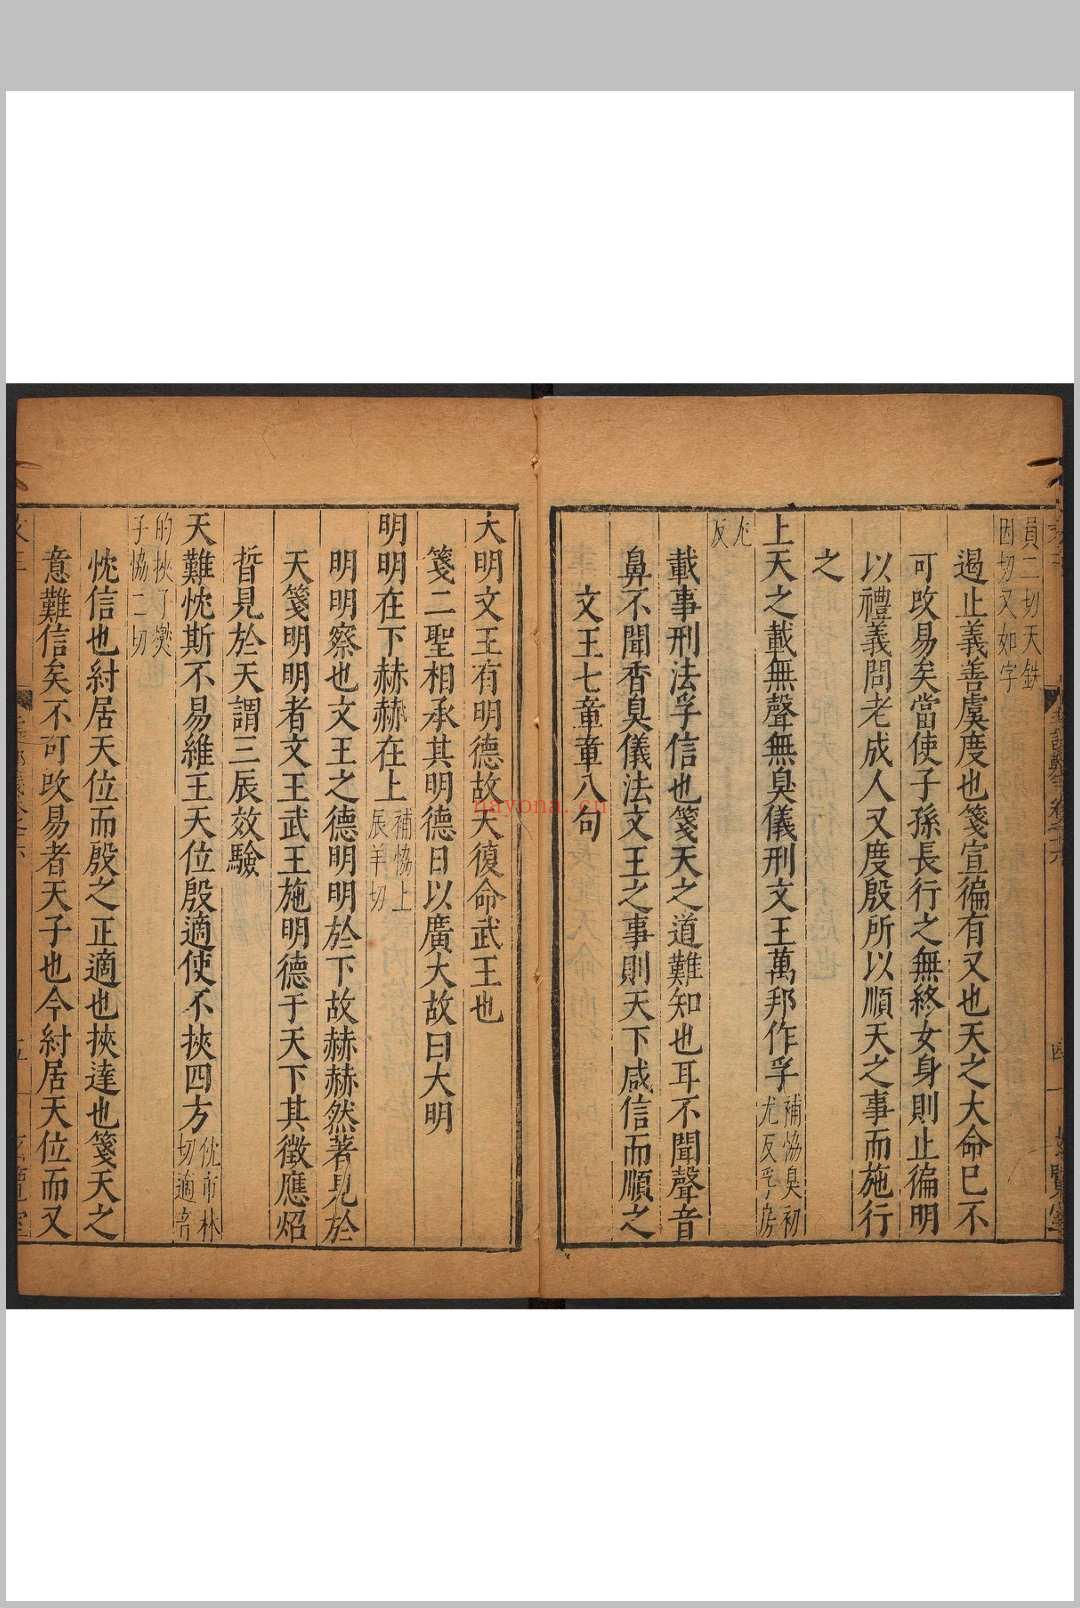 員二切天鉄
因切又如字
遏止義善虞度也箋宣徧有又也天之大命已不
可改易矣當使子孫長行之無終女身則止徧明
以禮義問老成人又度殷所以順天之事而施行
之
上天之載無聲無臭儀刑文王萬邦作孚補恊臭初
尤反孚房
尤
反
載事刑法孚信也箋天之道難知也耳不聞聲音
鼻不聞香臭儀法文王之事則天下咸信而順之
文王七章章八句
大明文王有明德故天復命武王也
箋二聖相承其明德日以廣大故曰大明
明明在下赫赫在上補恊上
辰羊切
明明察也文王之德明明於下故赫赫然著見於
天箋明明者文王武王施明德于天下其徵應炤
晢見於天謂三辰效驗
天難忱斯不易維王天位殷適使不挾四方忱市林
切適音
的挾子爕
子恊二切
忱信也紂居天位而殷之正適也挾達也箋天之
意難信矣不可改易者天子也今紂居天位而又
nayona.cn